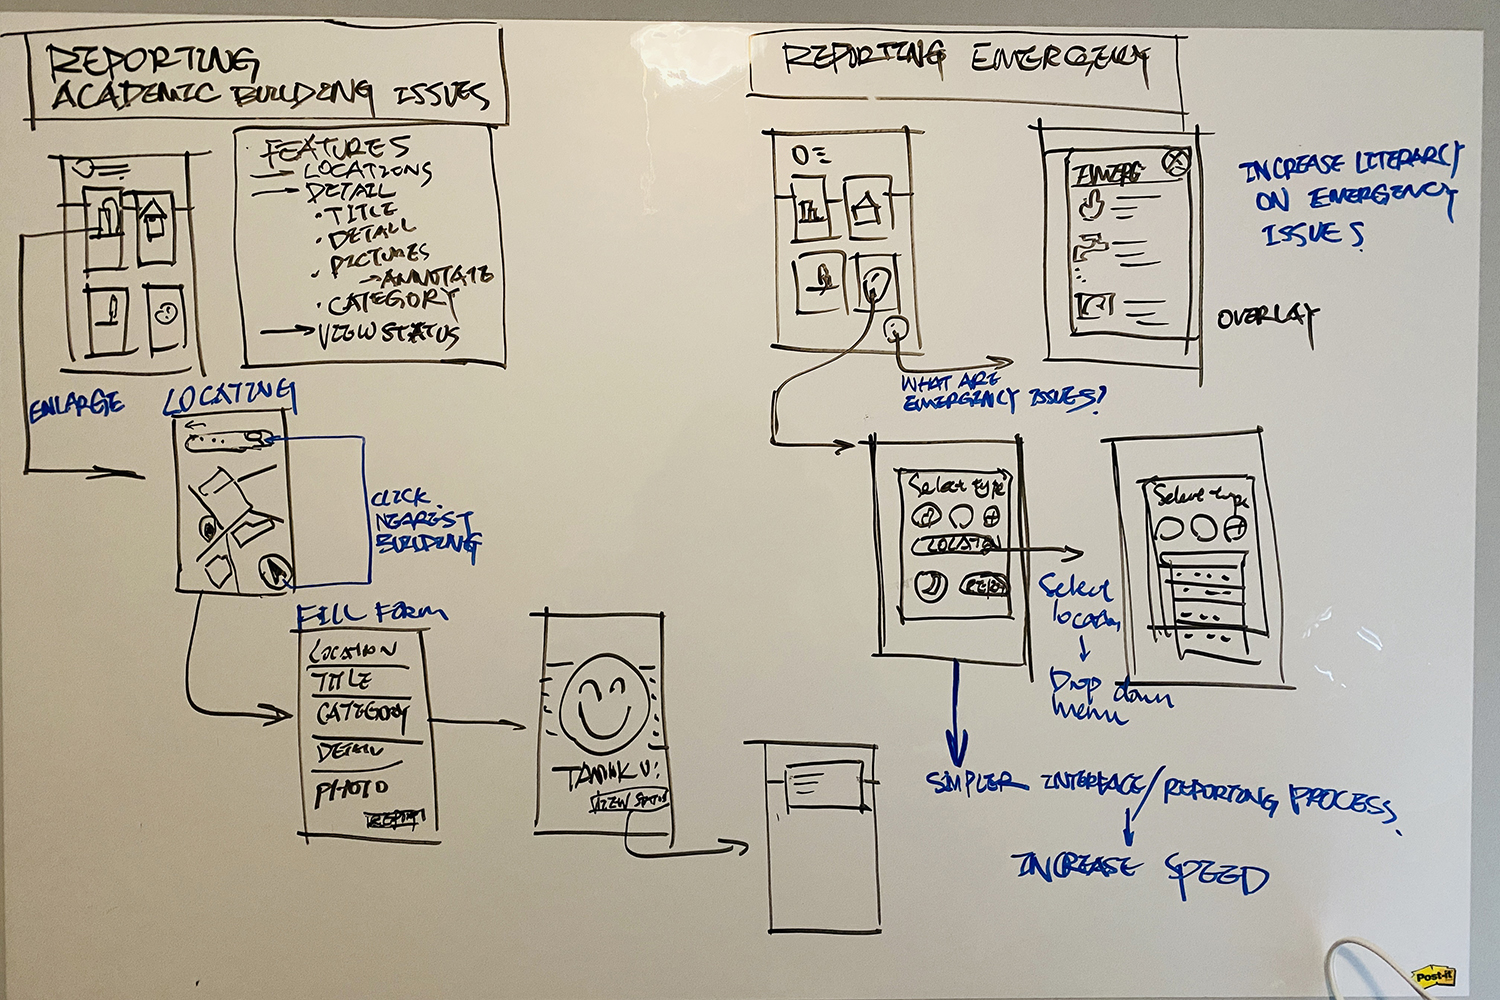 REPORTING
ACADEMIC BUILDING ISSUES
FEATURES
→ LOCATIONS
→ DETAIL
· TITLE
· DETAIL
· PICTURES
→ ANNOTATE
· CATEGORY
→ VIEW STATUS
ENLARGE
LOCATING
CLICK
NEAREST
BUILDING
FILL FORM
LOCATION
TITLE
CATEGORY
DETAIL
PHOTO
REPORT
THANK U!
VIEW STATUS
REPORTING EMERGENCY
EMERG
INCREASE LITERARCY
ON EMERGENCY
ISSUES.
OVERLAY
WHAT ARE
EMERGENCY ISSUES?
Select type
LOCATION
REPORT
Select
location
↓
Drop down
menu
Select type
SIMPLER INTERFACE/REPORTING PROCESS.
↓
INCREASE SPEED
Post-it